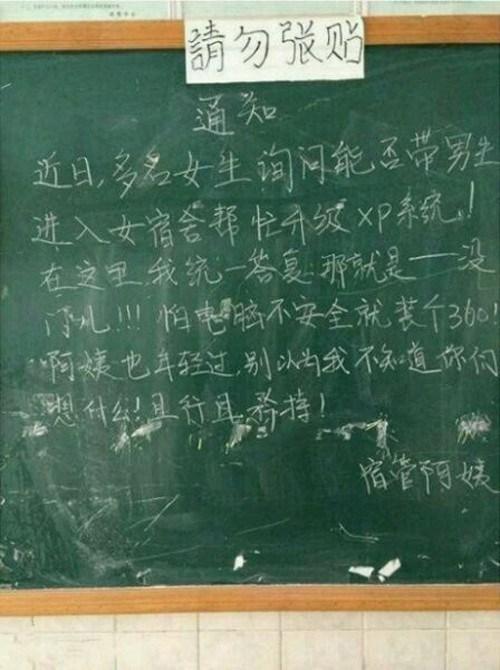 請勿张贴
通知
近日,多名女生询问能否带男生
进入女宿舍帮忙升级XP系统!
在这里我统一答复:那就是——没
门儿!!!怕电脑不安全就装个360!
阿姨也年轻过,别以为我不知道你们
想什么!且行且矜持!
宿管阿姨